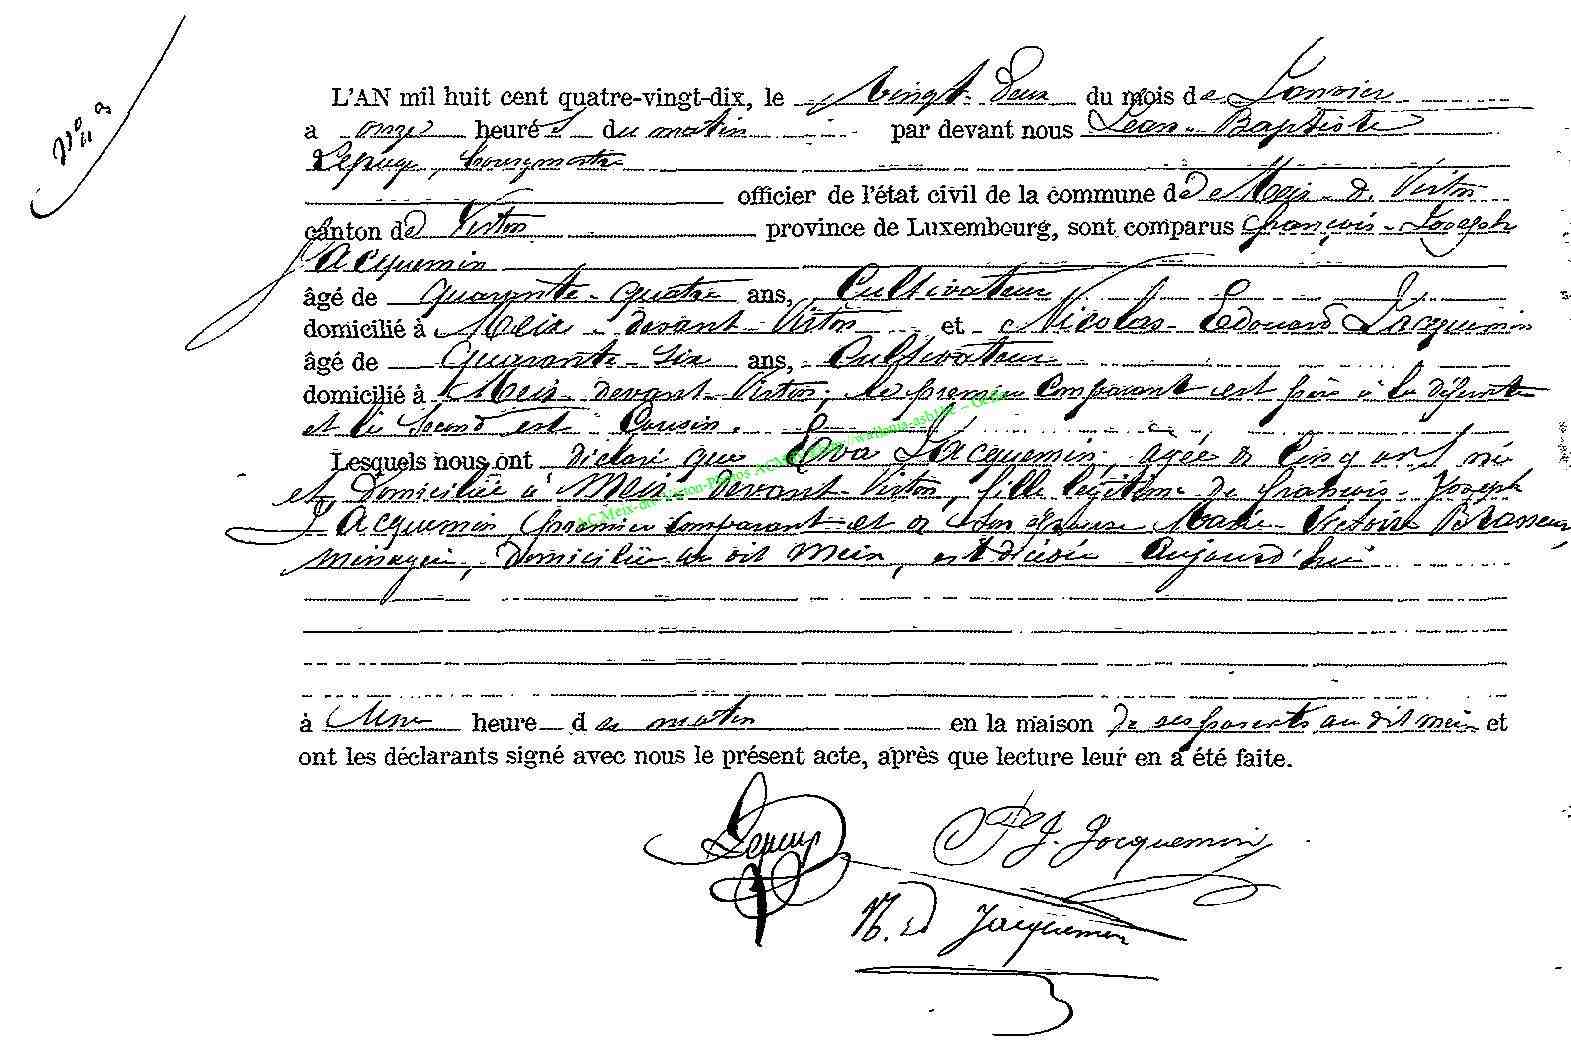 N° 3
L'AN mil huit cent quatre-vingt-dix, le vingt-deux du mois de Janvier
a onze heures du matin par devant nous Jean-Baptiste
Lepuge, bourgmestre
officier de l'état civil de la commune de Meix-d. Virton
canton de Virton province de Luxembourg, sont comparus françois-Joseph
Jacquemin
âgé de quarante-quatre ans, Cultivateur
domicilié à Meix-devant-Virton et Nicolas-Edouard Jacquemin
âgé de quarante-six ans, Cultivateur
domicilié à Meix-devant-Virton; le premier comparant est père à la défunte
et le second est Cousin.
Lesquels nous ont déclaré que Eva Jacquemin, agée de Cinq ans née
et domiciliée à Meix-devant-Virton, fille légitime de francois-Joseph
Jacquemin, premier comparant et de son épouse Marie-Victoire Brasseur,
ménagère, domiciliée au dit Meix, est décédée aujourd'hui
à Une heure du matin en la maison de ses parents au dit meix et
ont les déclarants signé avec nous le présent acte, après que lecture leur en a été faite.
F. J. Jacquemin
N. Ed Jacquemin